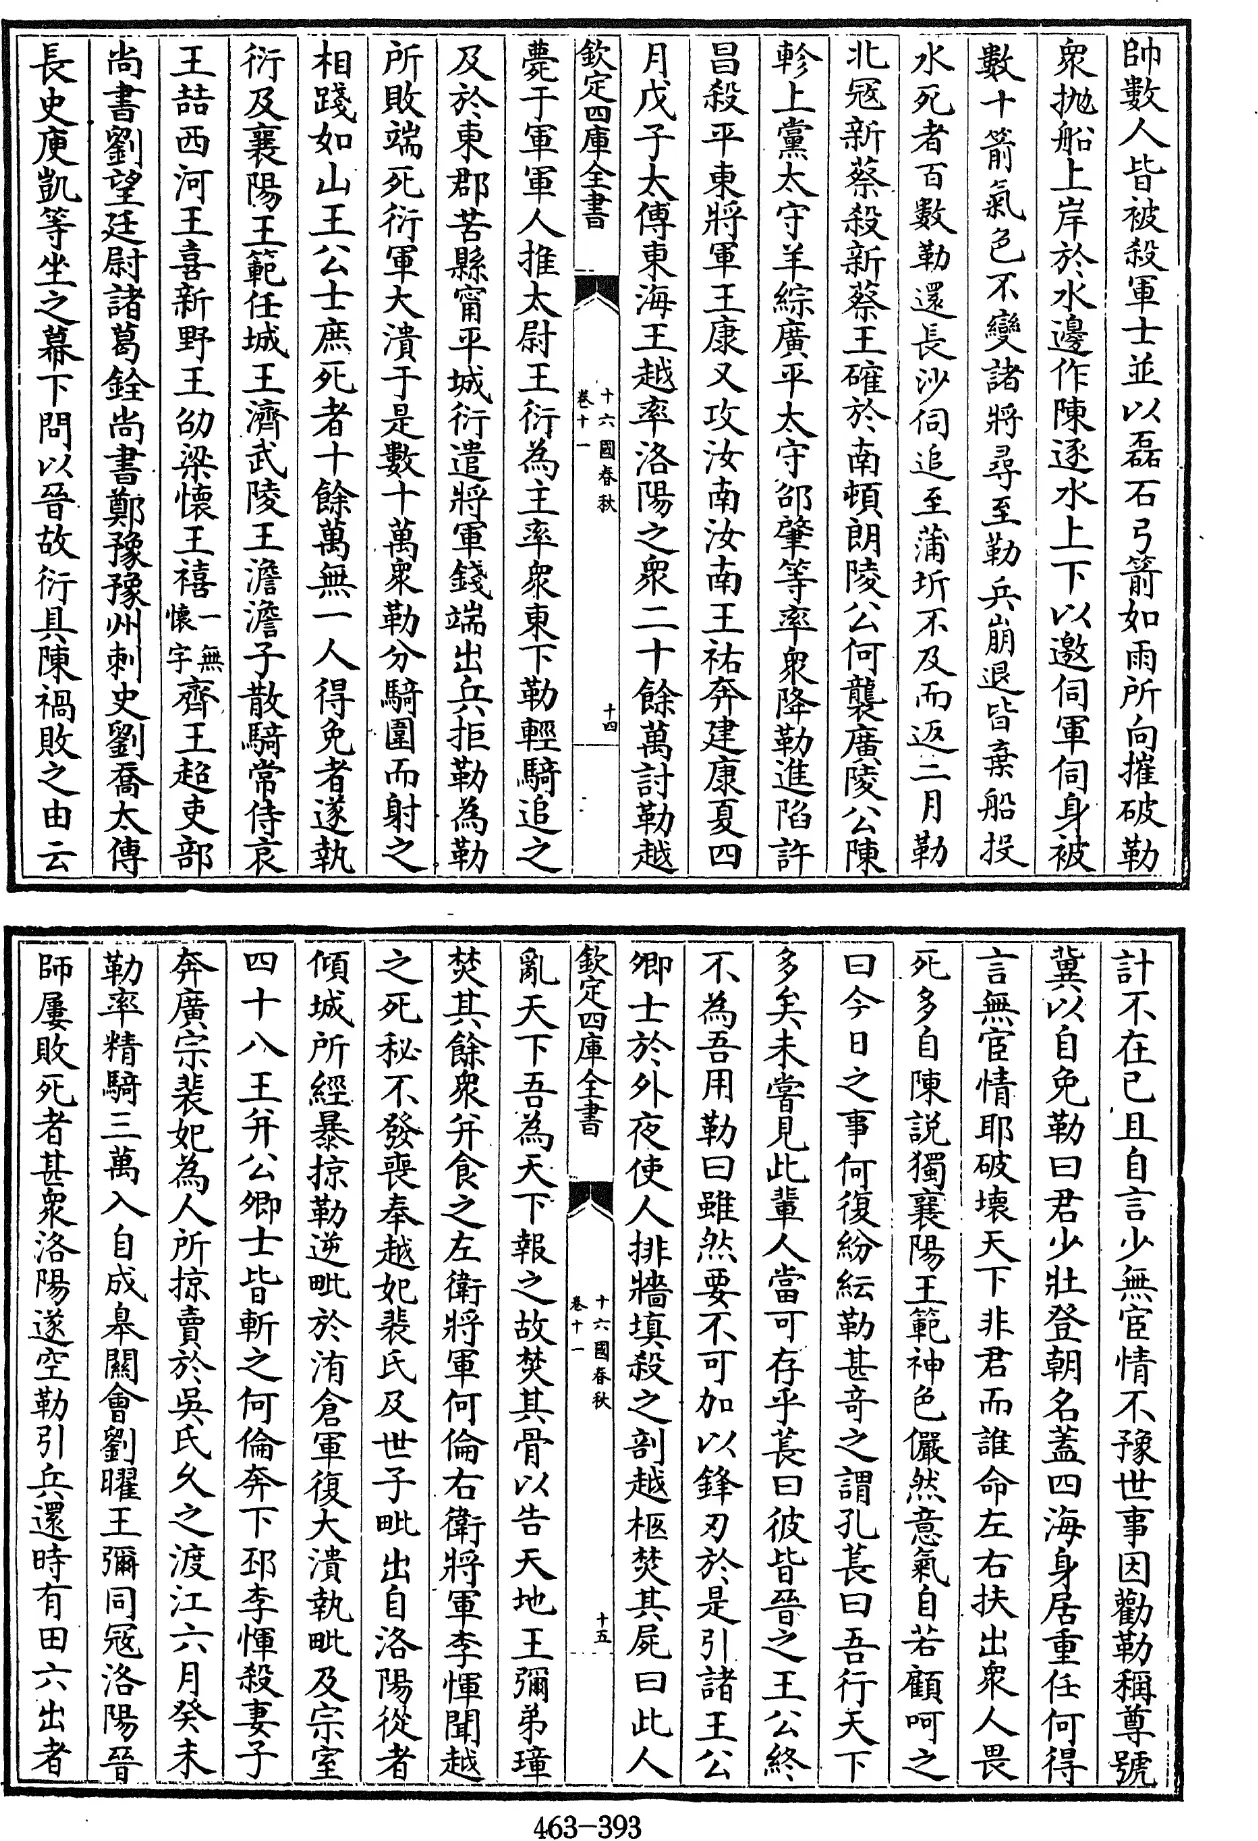 帥數人皆被殺軍士並以磊石弓箭如雨所向摧破勒
衆抛船上岸於水邊作陳逐水上下以邀伺軍伺身被
數十箭氣色不變諸將尋至勒兵崩退皆棄船投
水死者百數勒還長沙伺追至蒲圻不及而返二月勒
北宼新蔡殺新蔡王確於南頓朗陵公何襲廣陵公陳
軫上黨太守羊綜廣平太守邵肇等率衆降勒進陷許
昌殺平東將軍王康又攻汝南汝南王祐奔建康夏四
月戊子太傅東海王越率洛陽之衆二十餘萬討勒越
欽定四庫全書
十六國春秋
卷十一
十四
薨于軍軍人推太尉王衍為主率衆東下勒輕騎追之
及於東郡苦縣甯平城衍遣將軍錢端出兵拒勒為勒
所敗端死衍軍大潰于是數十萬衆勒分騎圍而射之
相踐如山王公士庶死者十餘萬無一人得免者遂執
衍及襄陽王範任城王濟武陵王澹澹子散騎常侍哀
王喆西河王喜新野王劭梁懷王禧一無懷字齊王超吏部
尚書劉望廷尉諸葛銓尚書鄭豫豫州刺史劉喬太傅
長史庾凱等坐之幕下問以晉故衍具陳禍敗之由云
計不在已且自言少無宦情不豫世事因勸勒稱尊號
冀以自免勒曰君少壯登朝名蓋四海身居重任何得
言無宦情耶破壞天下非君而誰命左右扶出衆人畏
死多自陳説獨襄陽王範神色儼然意氣自若顧呵之
曰今日之事何復紛紜勒甚竒之謂孔萇曰吾行天下
多矣未嘗見此輩人當可存乎萇曰彼皆晉之王公終
不為吾用勒曰雖然要不可加以鋒刃於是引諸王公
卿士於外夜使人排牆填殺之剖越柩焚其屍曰此人
欽定四庫全書
十六國春秋
卷十一
十五
亂天下吾為天下報之故焚其骨以告天地王彌弟璋
焚其餘衆并食之左衛將軍何倫右衛將軍李惲聞越
之死秘不發喪奉越妃裴氏及世子毗出自洛陽從者
傾城所經暴掠勒逆毗於洧倉軍復大潰執毗及宗室
四十八王并公卿士皆斬之何倫奔下邳李惲殺妻子
奔廣宗裴妃為人所掠賣於吳氏久之渡江六月癸未
勒率精騎三萬入自成臯關會劉曜王彌同宼洛陽晉
師屢敗死者甚衆洛陽遂空勒引兵還時有田六出者
463-393